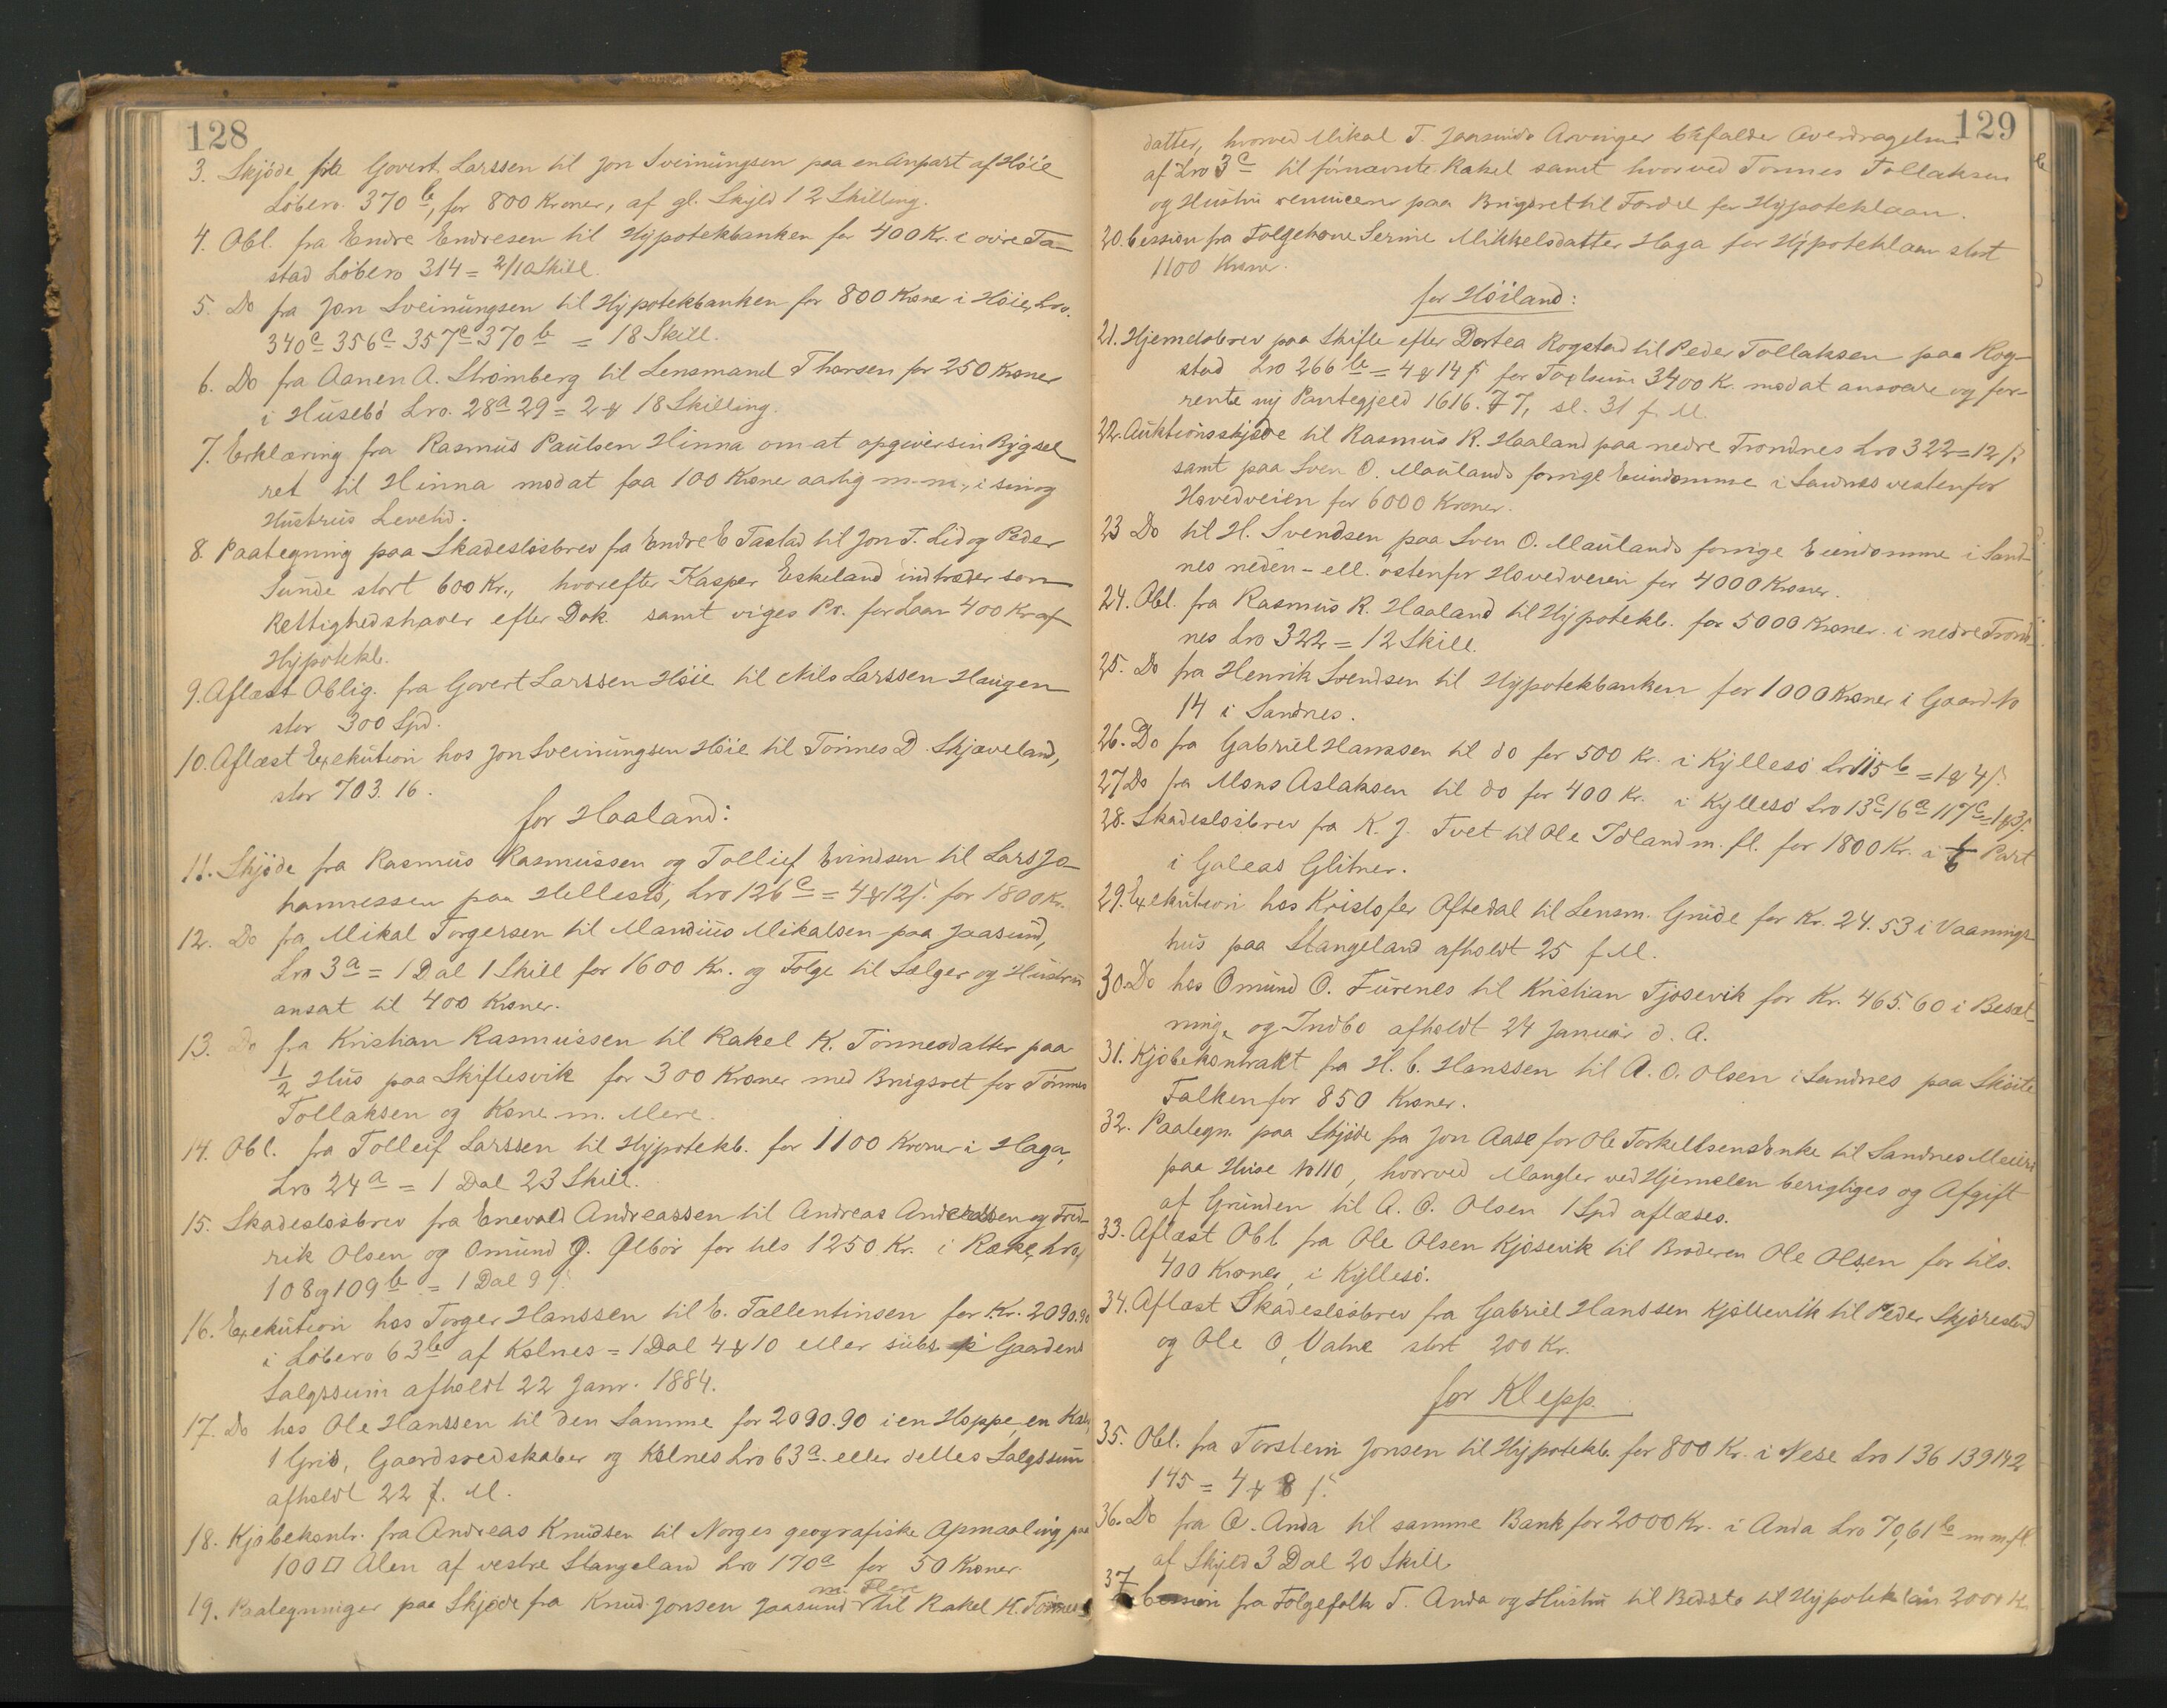 128
3. Skjöde fra Govert Larssen til Jon Sveinungsen paa en Anpart af Höie
Löbero. 370 b, for 800 Kroner, af gl. Skyld 12 Skilling.
4. Obl. fra Endre Endresen til Hypotekbanken for 400 Kr. i övre Ta-
stad Löbero 314 = 2/10 Skill.
5. Do fra Jon Sveinungsen til Hypotekbanken for 800 Krone i Höie, Lro.
340c 356c 357c 370 b = 18 Skill.
6. Do fra Aanen A. Strömberg til Lensmand Thorsen for 250 Kroner
i Husebö Lro. 28a 29 = 2 # 18 Skilling.
7. Erklæring fra Rasmus Paulsen Hinna om at opgive sin Bygsel
ret til Hinna mod at faa 100 Krone aarlig m. m., i sin og
Hustrus Levetid.
8. Paategning paa Skadeslösbrev fra Endre E Tastad til Jon T. Lid og Peder
Sunde stort 600 Kr., hvorefter Kasper Eskeland indtræder som
Rettighedshaver efter Dok. samt viges Pr. for Laan 400 Kr af
Hypotekb.
9. Aflæst Oblig. fra Govert Larssen Höie til Nils Larssen Haugen
stor 300 Spd.
10. Aflæst Exekution hos Jon Sveinungsen Höie til Tönnes D. Skjæveland,
stor 703. 16.
for Haaland:
11. Skjöde fra Rasmus Rasmussen og Tollief Evindsen til Lars Jo-
hannessen paa Hellestö, Lro 126 c = 4 # 12 f. for 1800 Kr.
12. Do fra Mikal Torgersen til Mandius Mikalsen paa Jaasund,
Lro 3 a = 1 Dal 1 Skill for 1600 Kr. og Folge til Sælger og Hustru
ansat til 400 Kroner.
13. Do fra Kristian Rasmussen til Rakel K. Tönnesdatter paa
1/2 Hus paa Skiftesvik for 300 Kroner med Brugsret for Tönnes
Tollaksen og Kone m. Mere.
14. Obl. fra Tolleif Larssen til Hypotekb. for 1100 Kroner i Haga,
Lro 24 a = 1 Dal 23 Skill.
15. Skadeslösbrev fra Enevald Andreassen til Andreas Andreassen og Fred-
rik Olsen og Omund G. Ølbör for tils 1250 Kr. i Ræke, Lro,
108 og 109 b = 1 Dal 9 f.
16. Exekution hos Torger Hanssen til E. Tallentinsen for Kr. 2090.90
i Löbero 63 b af Kolnes = 1 Dal 4 # 10 eller subs. Gaardens
Salgssum afholdt 22 Janr. 1884.
17. Do hos Ole Hanssen til den Samme for 2090.90 i en Hoppe, en Kalv,
1 Gris, Gaardsredskaber og Kolnes Lro 63 a. eller delles Salgssum
afholdt 22 f. M.
18. Kjöbekontr. fra Andreas Knudsen til Norges geografiske Opmaaling paa
100 □ Alen af vestre Stangeland Lro 170 a for 50 Kroner.
19. Paategninger paa Skjöde fra Knud Jonsen Jaasund m. Flere til Rakel K. Tönnes
129
datter, hvorved Mikal T. Jaasunds Arvinger bifalder Overdragelsen
af Lro 3 c til fornævnte Rakel samt hvorved Tonnes Tollaksen
og Hustru renuncerer paa Brugsret til Fordel for Hypoteklaan.
20. Cession fra Folgekone Serine Mikkelsdatter Haga for Hypoteklaan stort
1100 Kroner.
for Höiland:
21. Hjemelsbrev paa Skifte efter Dortea Rogstad til Peder Tollaksen paa Rog-
stad Lro 266 b = 4 # 14 f for Taxtsum 3400 K. mod at ansvare og for-
rente ny Pantegjeld 1616. 77, sl. 31 f. M.
22. Auktionsskjöde til Rasmus R. Haaland paa nedre Trondnes Lro 322 = 12 f.
samt paa Sven O. Maulands forrige Eiendomme i Sandnes vestenfor
Hovedveien for 6000 Kroner.
23 Do til H. Svendsen paa Sven O. Maulands forrige Eiendomme i Sand-
nes neden- ell. östenfor Hovedveien for 4000 Kroner.
24. Obl. fra Rasmus R. Haaland til Hypotekb. for 5000 Kroner i nedre Trond-
nes Lro 322 = 12 Skill.
25. Do fra Henrik Svendsen til Hypotekbanken for 1000 Kroner i Gaard No
14 i Sandnes.
26. Do fra Gabriel Hanssen til do for 500 Kr. i Kyllesö Lro 115 b = 1 # 4 f.
27 Do fra Mons Aslaksen til do for 400 Kr. i Kyllesö Lro 13c 16a 117c = 1 # 3 f.
28. Skadeslösbrev fra K. J. Tvet til Ole Töland m. fl. for 1800 Kr. i 1/6 Part
i Galeas Glitner.
29. Exekution hos Kristofer Aftedal til Lensm. Grude for Kr. 24. 53 i Vaanings-
hus paa Stangeland afholdt 25 f M.
30. Do hos Omund O. Furenes til Kristian Tjosevik for Kr. 465.60 i Besæt-
ning og Indbo afholdt 24 Januar d. A.
31. Kjöbekontrakt fra H. C. Hanssen til A. O. Olsen i Sandnes paa Sköite
Falken for 850 Kroner.
32. Paategn. paa Skjöde fra Jon Aase for Ole Torkellsens Enke til Sandnes Meieri
paa Huse No 110, hvorved Mangler ved Hjemelen berigtiges og Afgift
af Grunden til A. O. Olsen 1 Spd aflæses.
33. Aflæst Obl. fra Ole Olsen Kjosevik til Broderen Ole Olsen for tils.
400 Kroner, i Kyllesö.
34. Aflæst Skadeslösbrev fra Gabriel Hanssen Kjöllevik til Peder Skjörestad
og Ole O. Vatne stort 200 Kr.
for Klepp.
35. Obl. fra Torstein Jonsen til Hypotekb. for 800 Kr. i Nese Lro 136 139 142
145 = 4 # 8 f.
36. Do fra O. Anda til samme Bank for 2000 Kr. i Anda Lro 70, 61 b m m fl.
af Skyld 3 Dal 20 Skill.
37 Cession fra Folgefolk T. Anda og Hustru til Bedste til Hypoteklån 2000 K